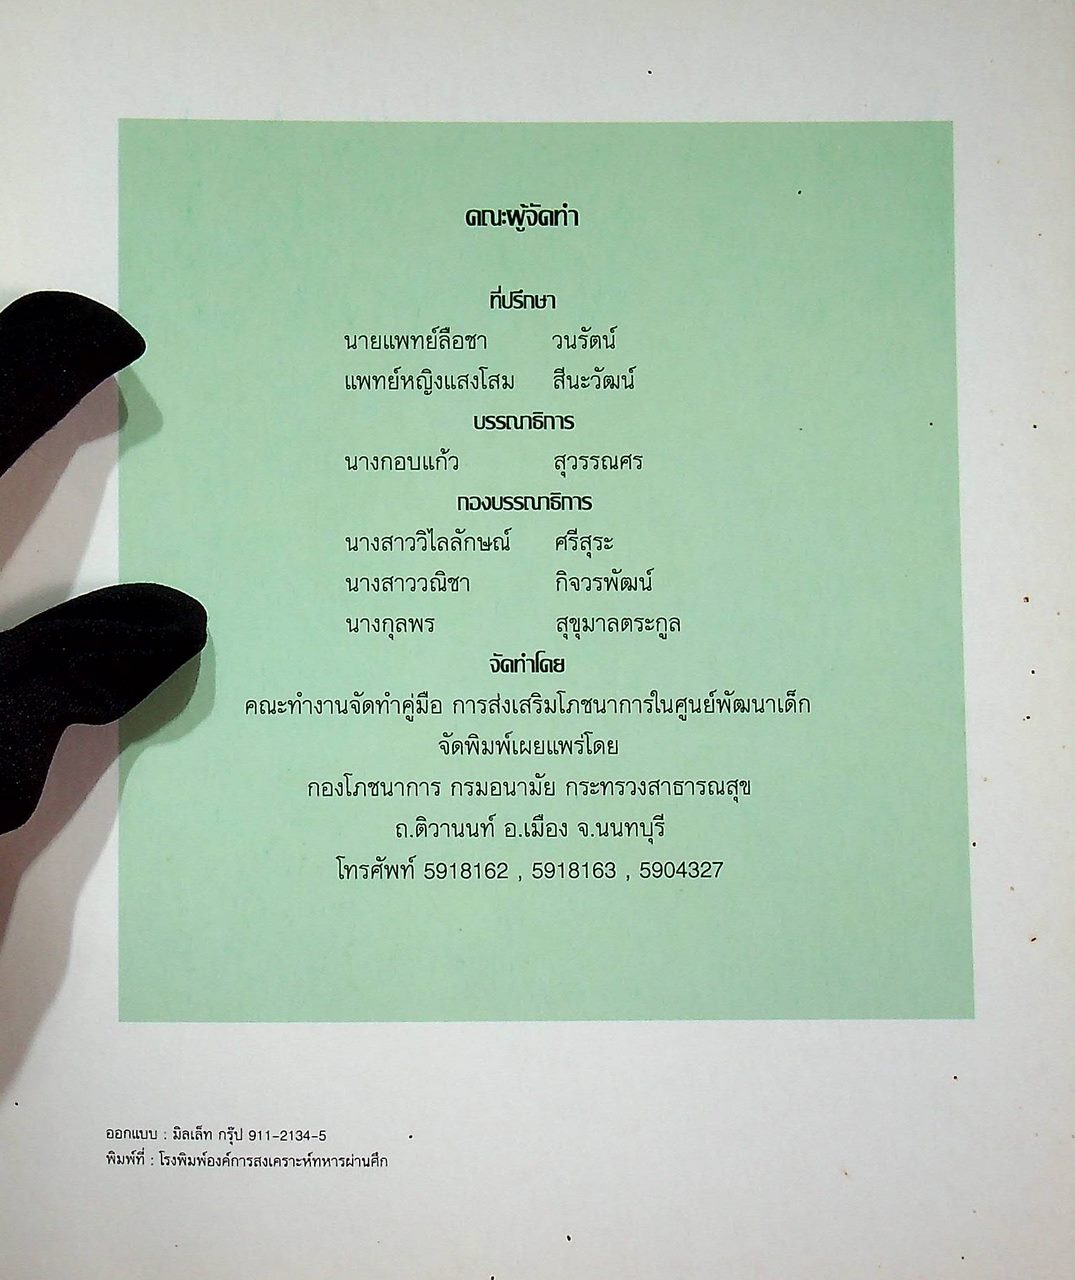 คณะผู้จัดทำ
ที่ปรึกษา
นายแพทย์ลือชา วนรัตน์
แพทย์หญิงแสงโสม สีนะวัฒน์
บรรณาธิการ
นางกอบแก้ว สุวรรณศร
กองบรรณาธิการ
นางสาววิไลลักษณ์ ศรีสุระ
นางสาววณิชา กิจวรพัฒน์
นางกุลพร สุขุมาลตระกูล
จัดทำโดย
คณะทำงานจัดทำคู่มือ การส่งเสริมโภชนาการในศูนย์พัฒนาเด็ก
จัดพิมพ์เผยแพร่โดย
กองโภชนาการ กรมอนามัย กระทรวงสาธารณสุข
ถ.ติวานนท์ อ.เมือง จ.นนทบุรี
โทรศัพท์ 5918162 , 5918163 , 5904327
ออกแบบ : มิลเล็ท กรุ๊ป 911-2134-5
พิมพ์ที่ : โรงพิมพ์องค์การสงเคราะห์ทหารผ่านศึก